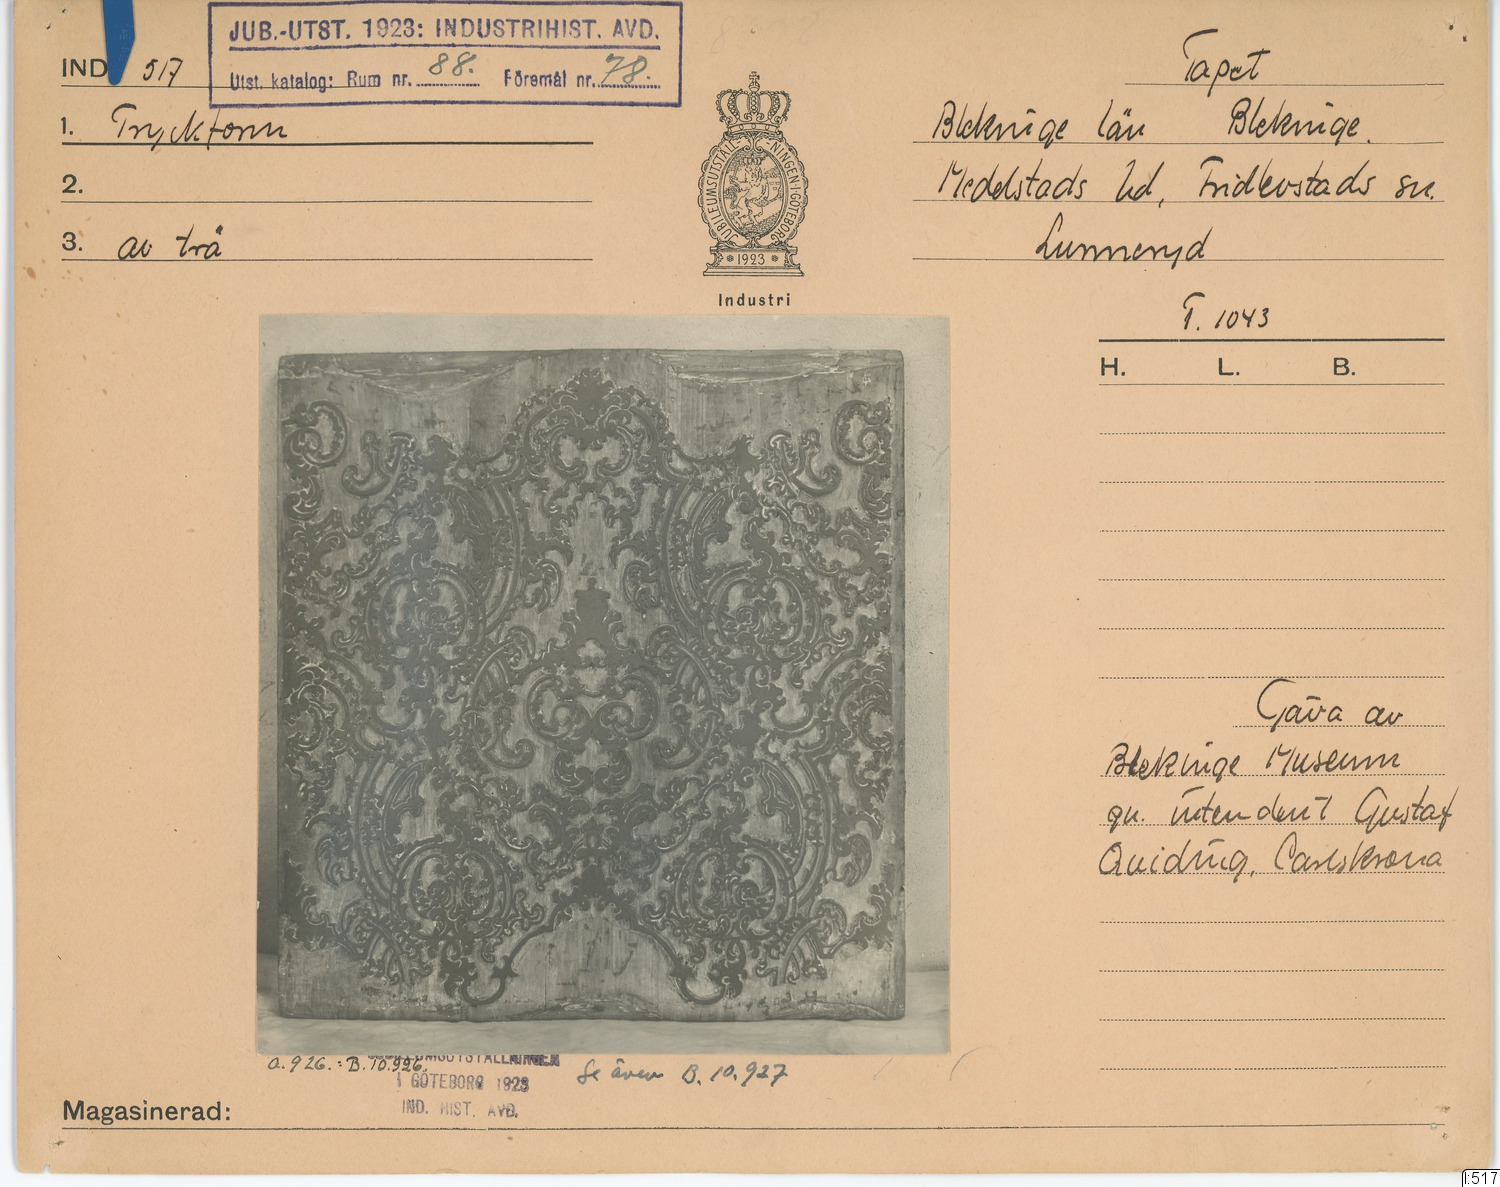 JUB.-UTST. 1923: INDUSTRIHIST. AVD.
Utst. katalog: Rum nr. 88. Föremål nr. 78.
IND 517
1. Tryckform
2.
3. av trä
Tapet
Blekinge län Blekinge.
Medelstads hd, Fridlevstads sn.
Lunneryd
JUBILEUMSUTSTÄLLNINGEN I GÖTEBORG
1923
Industri
T. 1043
H. L. B.
Gåva av
Blekinge Museum
gn. intendent Gustaf
Quiding, Carlskrona
a. 926. : B. 10.926.
I GÖTEBORG 1923
IND. HIST. AVD.
Se även B. 10.927
Magasinerad:
I:517